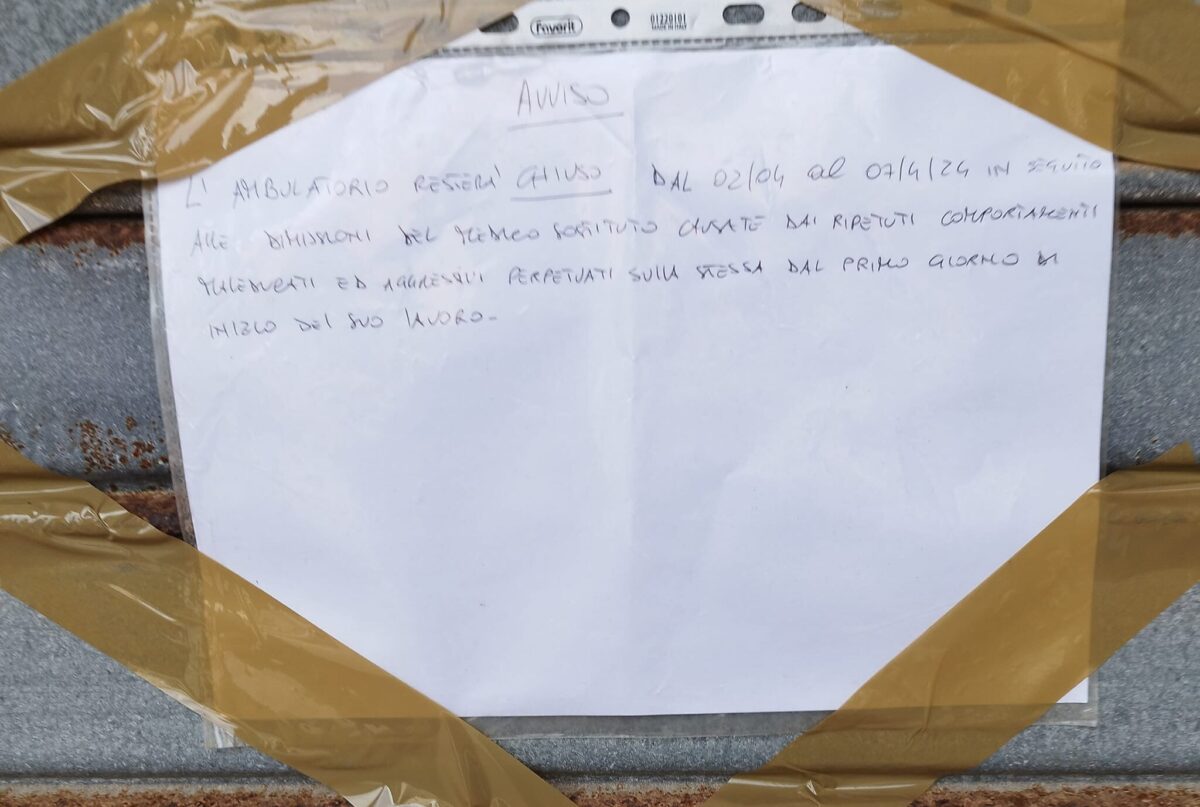 Favorit
01220101
MADE IN ITALY
AVVISO
L' AMBULATORIO RESTERA' CHIUSO DAL 02/04 al 07/4/24 IN SEGUITO
ALLE DIMISSIONI DEL MEDICO SOSTITUTO CAUSATE DAI RIPETUTI COMPORTAMENTI
MALEDUCATI ED AGGRESSIVI PERPETUATI SULLA STESSA DAL PRIMO GIORNO DI
INIZIO DEL SUO LAVORO-